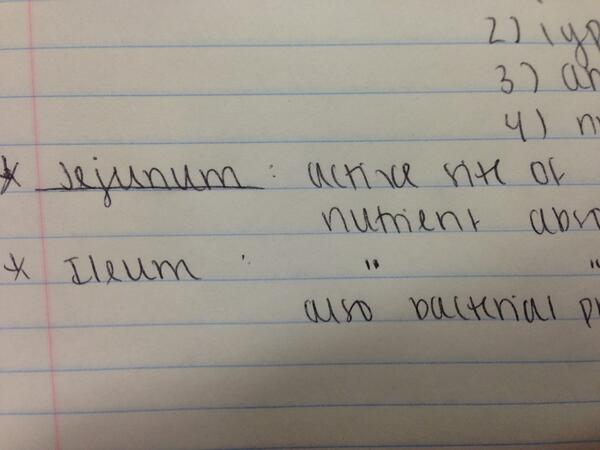 2) typ
3) an
4) n
* Jejunum: active site of
nutrient abso
* Ileum: " "
also bacterial p